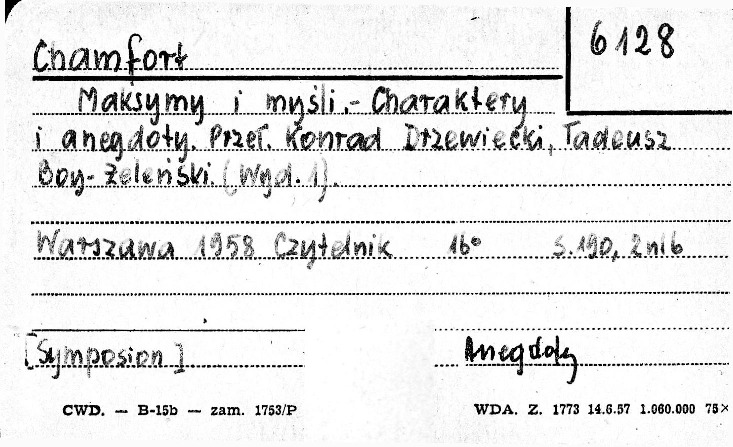 6128
Chamfort
Maksymy i myśli.- Charaktery
i anegdoty. Przeł. Konrad Drzewiecki, Tadeusz
Boy-Żeleński. (Wyd. 1).
Warszawa 1958 Czytelnik 16° s. 190, 2nlb
[Symposion] Anegdoty
CWD. — B-15b — zam. 1753/P WDA. Z. 1773 14.6.57 1.060.000 75×